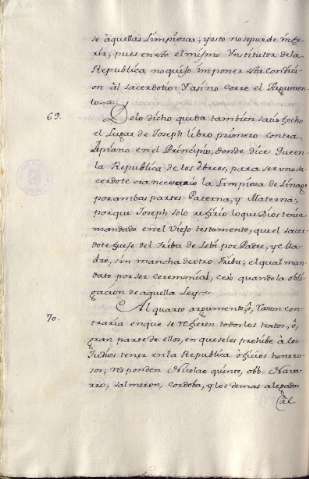 se àquellas Limpiezas; y esto no se puede infe-
rir; pues en esto el mismo Institutor de la
Republica no quiso imponer esta Condici-
on àl sacerdotio: Y asi no corre el Argumen-
to.
69. Dolo dicho queda tambien satisfecho
el Lugar de Joseph libro primero contra
Apiano en el Principio, donde dice que en
la Republica de los ôbreos, para ser uno sa-
cerdote era necesario la Limpieza de Linage
por ambas partes Paterna, y Materna;
porque Joseph solo refirio lo que Dios tenia
mandado en el Viejo testamento, que el sacer-
dote fuese del Tribu de Lebi por Padre, y Ma-
dre, sin mancha de otro Tribu; el qual man-
dato por ser ceremonial, cesò quando la obli-
gacion de aquella Ley.
70. Al quarto argumento, ò, razon con-
traria en que se refieren todos los textos, ò,
gran parte de ellos, en que se les prohibe à los
Judios tener en la Republica ôficios honrro-
sos; responden Nicolao quinto, obb. Navar-
rio, Salmeron, Cordoba, y los demas alegados
al